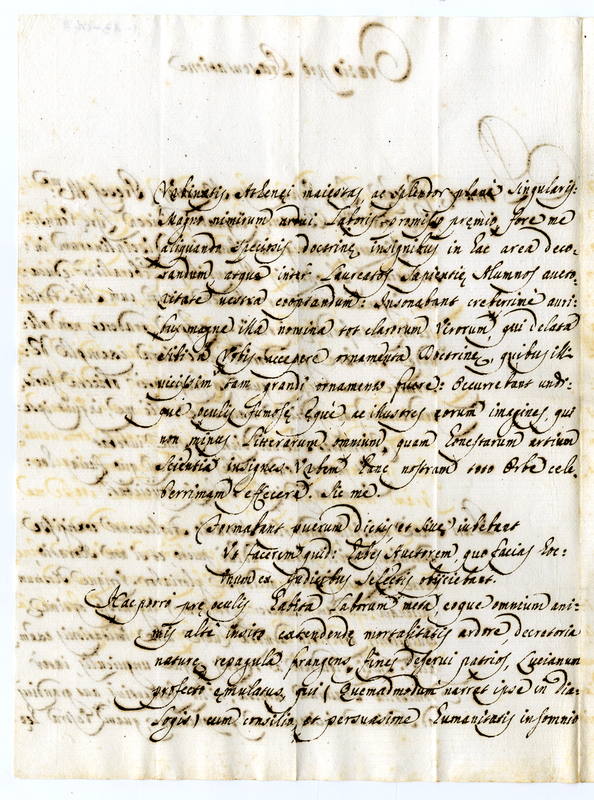 Urbinatis Athenei maiestas ac splendor planè singularis:
Magno nimirum ardui Laboris promisso premio, fore me
aliquando speciosis doctrinę insignibus in hac area deco-
randum atque inter Laureatos Sapientię Alumnos aucto-
ritate vestra cooptandum: Insonabant creberrimè auri-
bus magna illa nomina tot clarorum Virorum, qui delata
sibi à Vobis accepere ornamenta Doctrinę, quibus illi
vicissim tam grandi ornamento fuere: Occurrebant undi-
que oculis fumosę ęquè ac illustres eorum imagines qui
non minus Litterarum omnium, quam honestarum artium
scientia insignes Urbem hanc nostram toto Orbe cele-
berrimam effecerã. Sic me.
Formabant puerum dictis et sive iubebant
Ut facerem quid: habes Auctorem, quo facias hoc:
Unum ex Iudicibus Selectis obijciebant.
Hac porrò prę oculis habita Laborum meta, eoque omnium ani-
mis altè insito extendendę mortalitatis ardore decretoria
naturę repagula frangens, fines deserui patrios, Lucianum
profecto ęmulatus, qui (quemadmodum narret ipse in Dia-
logis) cum consilio, et persuasione Humanitatis in somnio